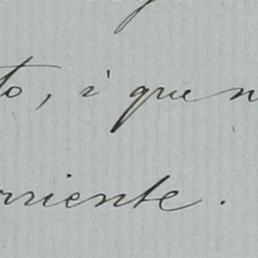 to, i que n
rriente.